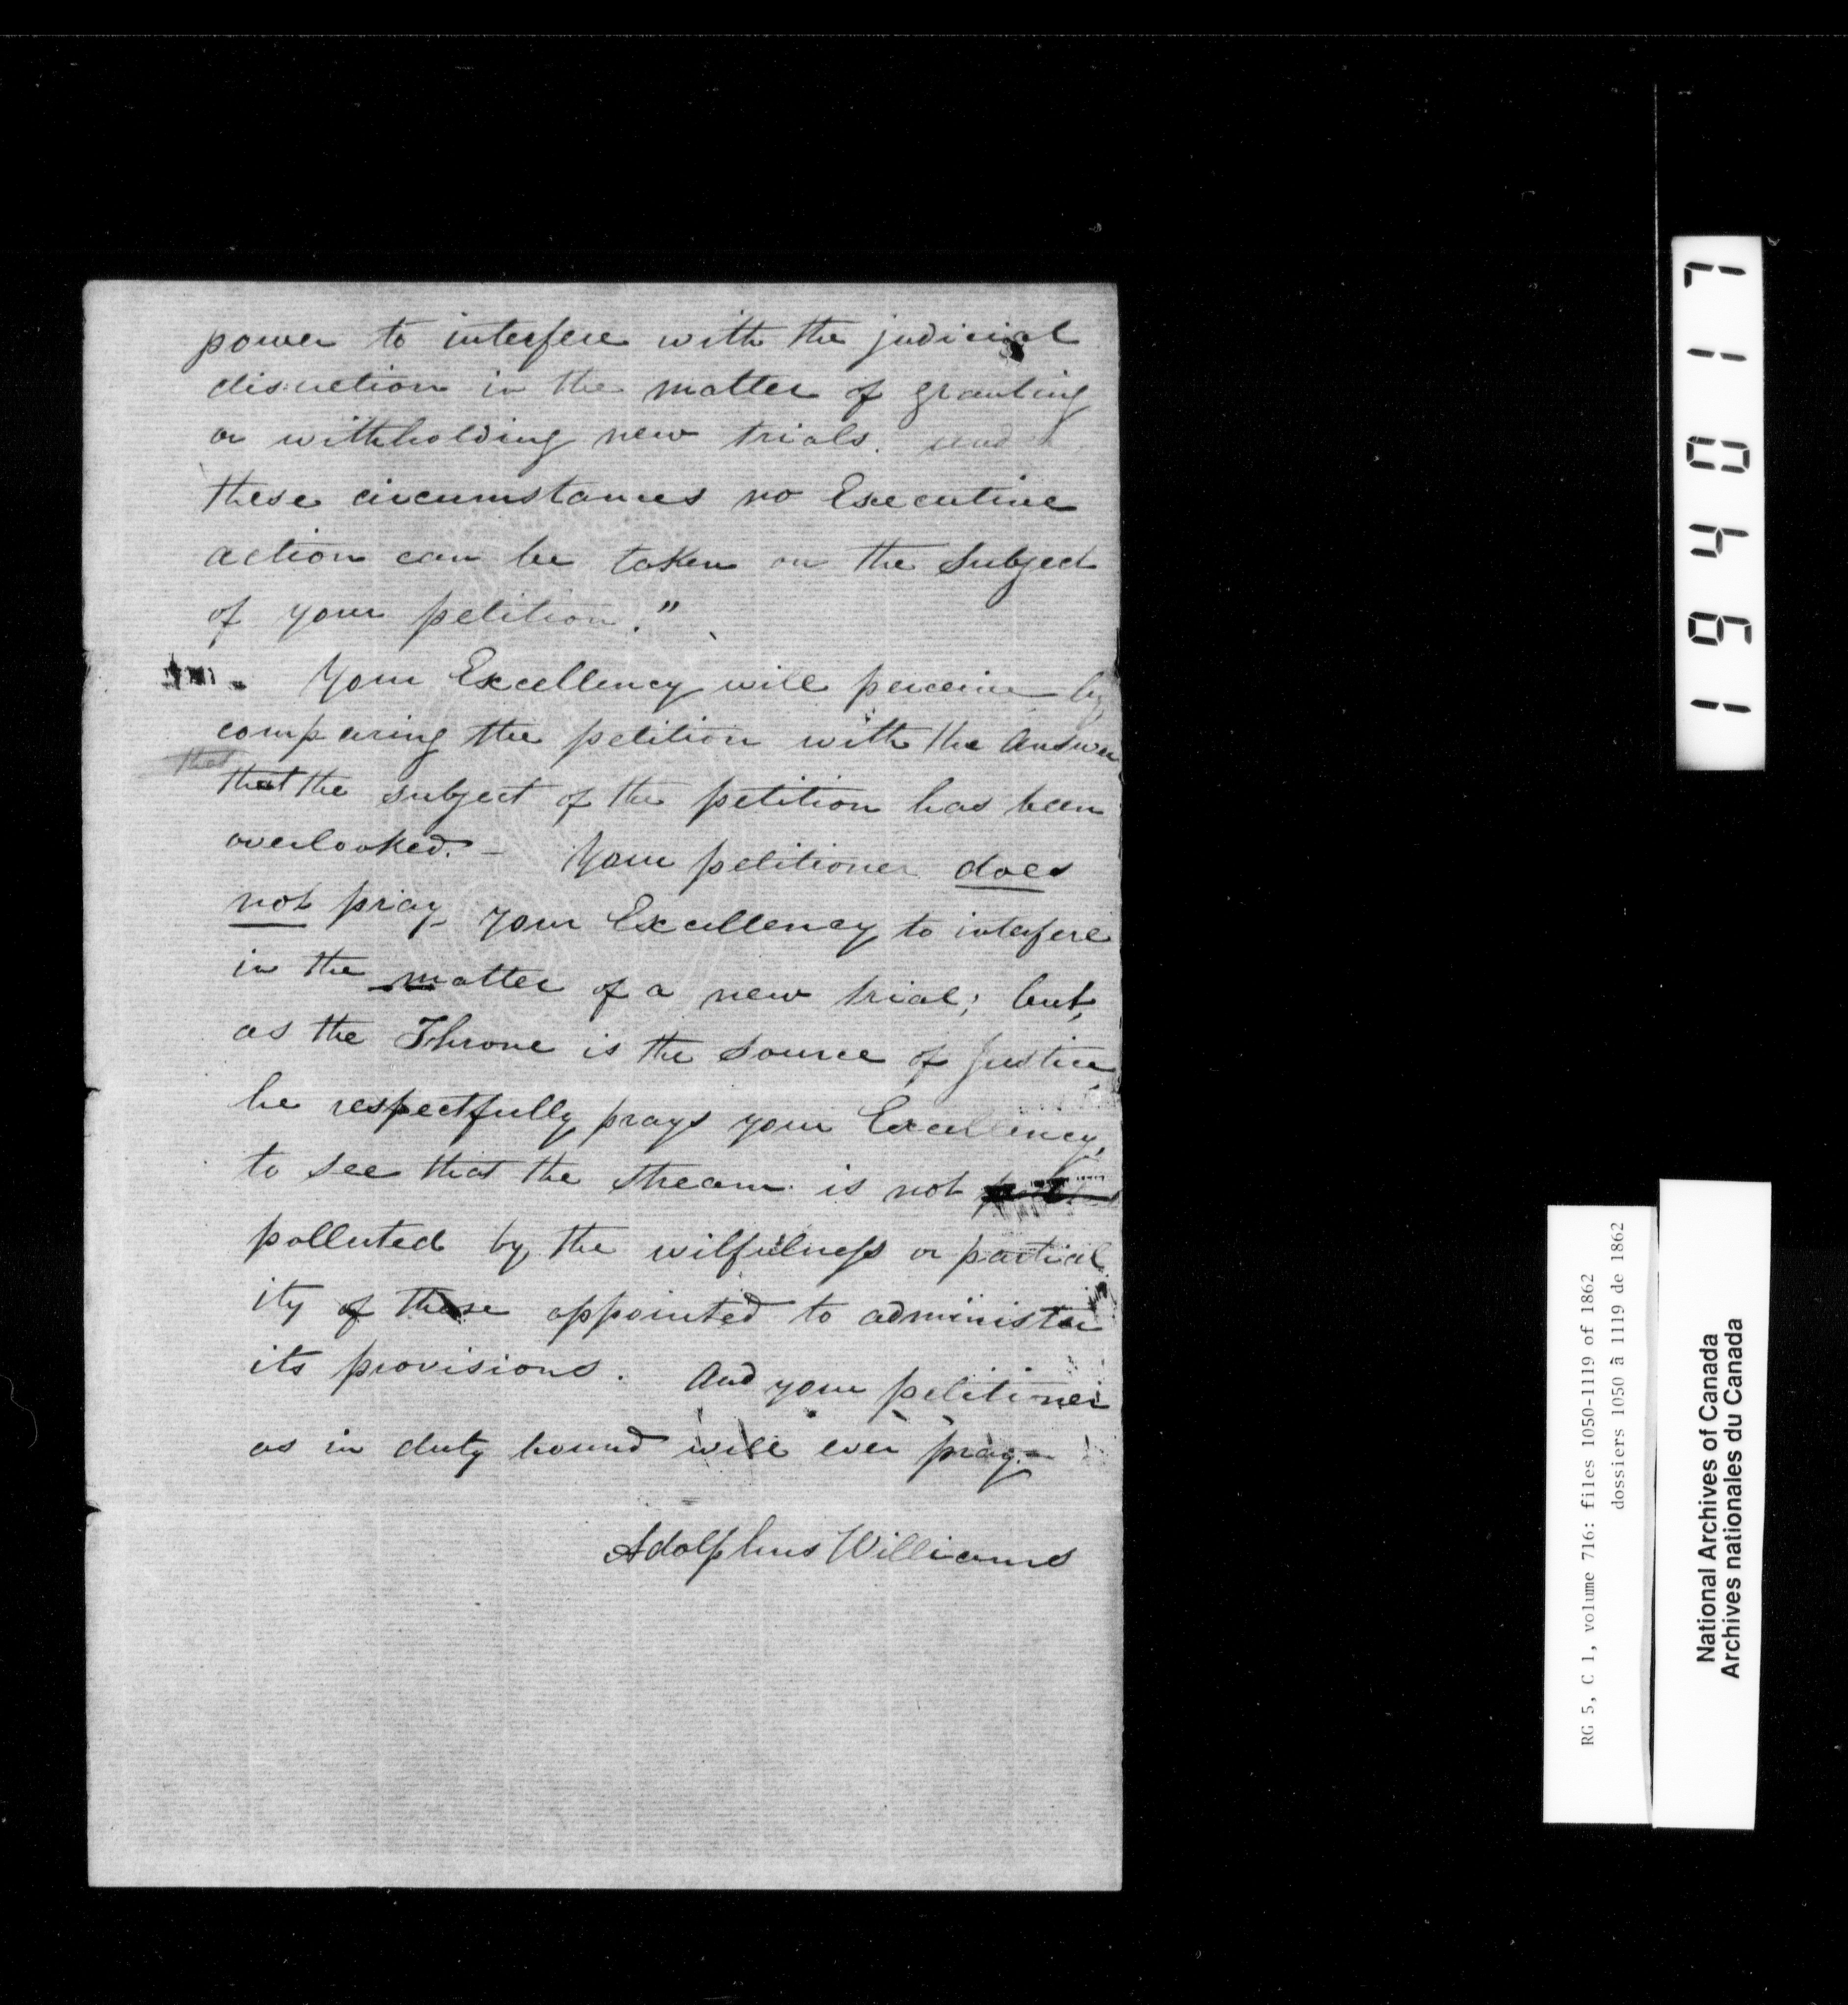 power to interfere with the judicial
discretion in the matter of granting
or withholding new trials. under
these circumstances no Executive
action can be taken on the Subject
of your petition."
Your Excellency will perceive by
comparing the petition with the Answer
that
that the subject of the petition has been
overlooked. - Your petitioner does
not pray your Excellency to interfere
in the matter of a new trial; but,
as the Throne is the source of Justice,
he respectfully prays your Excellency,
to see that the stream is not
polluted by the wilfulness or partial
ity of those appointed to administer
its provisions. And your petitioner
as in duty bound will ever pray.-
Adolphus Williams
194017
RG 5, C 1, volume 716: files 1050-1119 of 1862
dossiers 1050 à 1119 de 1862
National Archives of Canada
Archives nationales du Canada